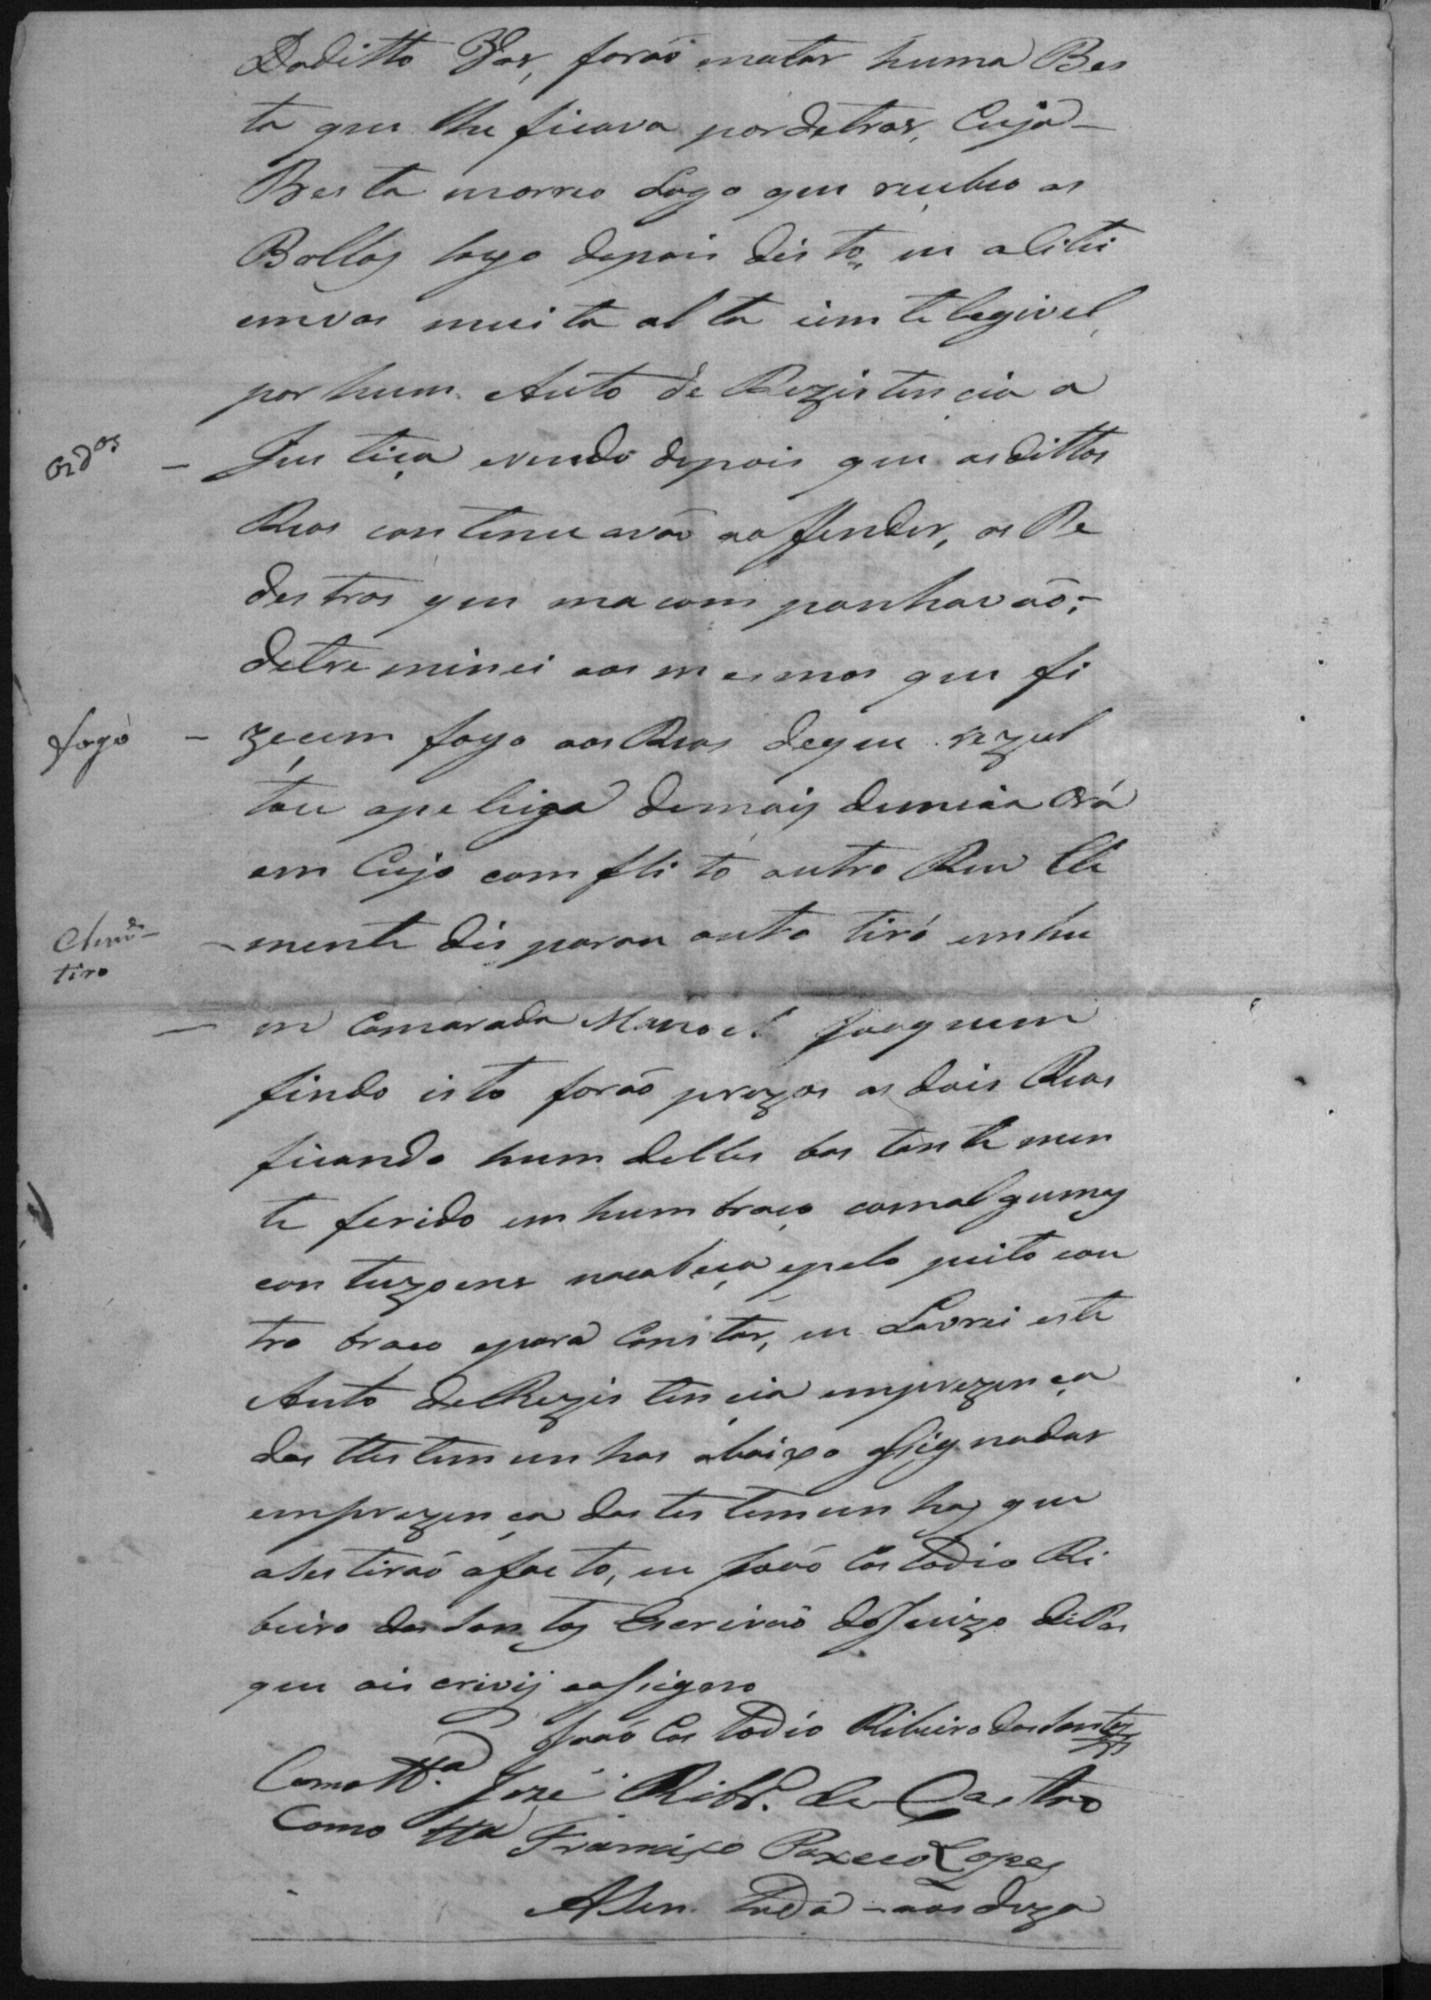 Doditto Vos, foraõ matar huma Bes
ta que lhe ficava pordetras, Cuja
Besta morreo Logo que recebeo as
Ballas logo depois disto, eu alitei
emvos muita alta eintelegivel
por hum Auto de Rezistencia a
Justiça evendo depois que osdittos
Reos continuavaõ aoffender, os Pe
destros que macompanhavaõ;
detreminei aos mesmos que fi
zeçem fogo aos Reos deque rezul
tou apeleija demais demeia Orá
em Cujo comflito outro Reu Cle
mente disparou outro tiro emhu
m Camarada Manoel Joaquim
findo isto foraõ prezos os dois Reos
ficando hum delles bastantemen
te ferido em hum braço comalgumas
contuzoens nacabeça epelo peito eou
tro braço epara Constar, eu Lavrei este
Auto deRezistencia emprezença
das testemunhas abaixo assignadas
emprezença das testemunhas que
asestiraõ afacto, eu Joaõ Costodio Ri
beiro dos Santos Escrivaõ doJuizo dePas
que oiscrivij eassigno
Joaõ Costodio Ribeiro dos Santos
Como tt.ª José Ribr.º de Castro
Como tta Francisco Paxeco Lopes
fogo
Clemde
tiro